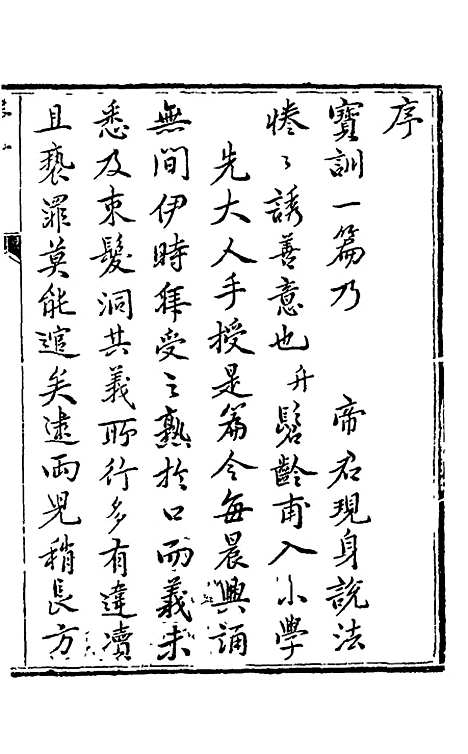 序
寶訓一篇乃　帝君現身說法
惓〻誘善意也升髫齡甫入小學
先大人手授是篇令每晨興誦
無間伊時拜受之熟於口而義未
悉及束髮洞其義所行多有違瀆
且褻罪莫能逭矣逮兩兒稍長方